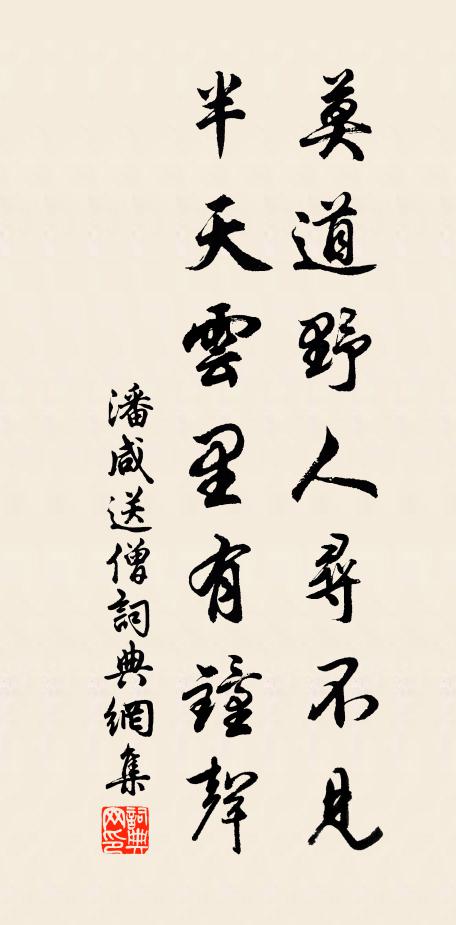 莫道野人尋不見
半天雲里有鐘聲
潘咸送僧詞典網集
詞典網印